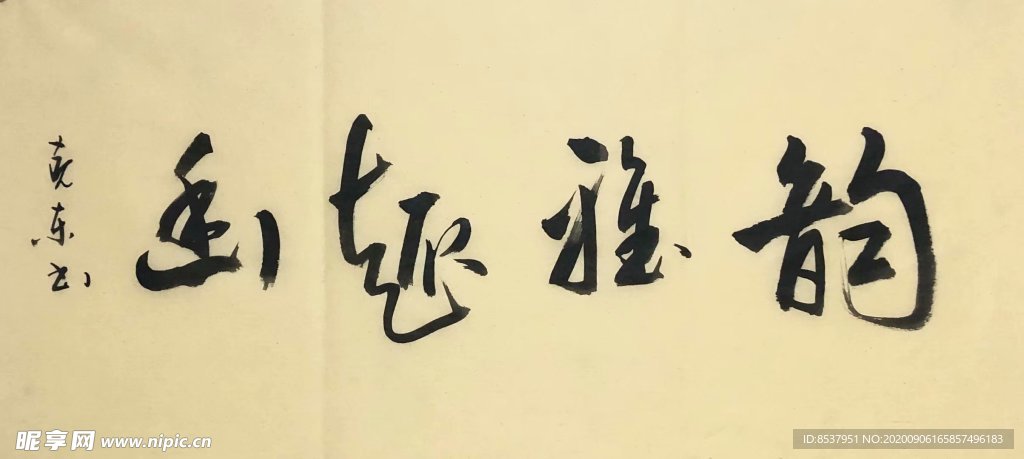 韵雅趣幽
尧东书
昵享网 www.nipic.cn
ID:8537951 NO:20200906165857496183